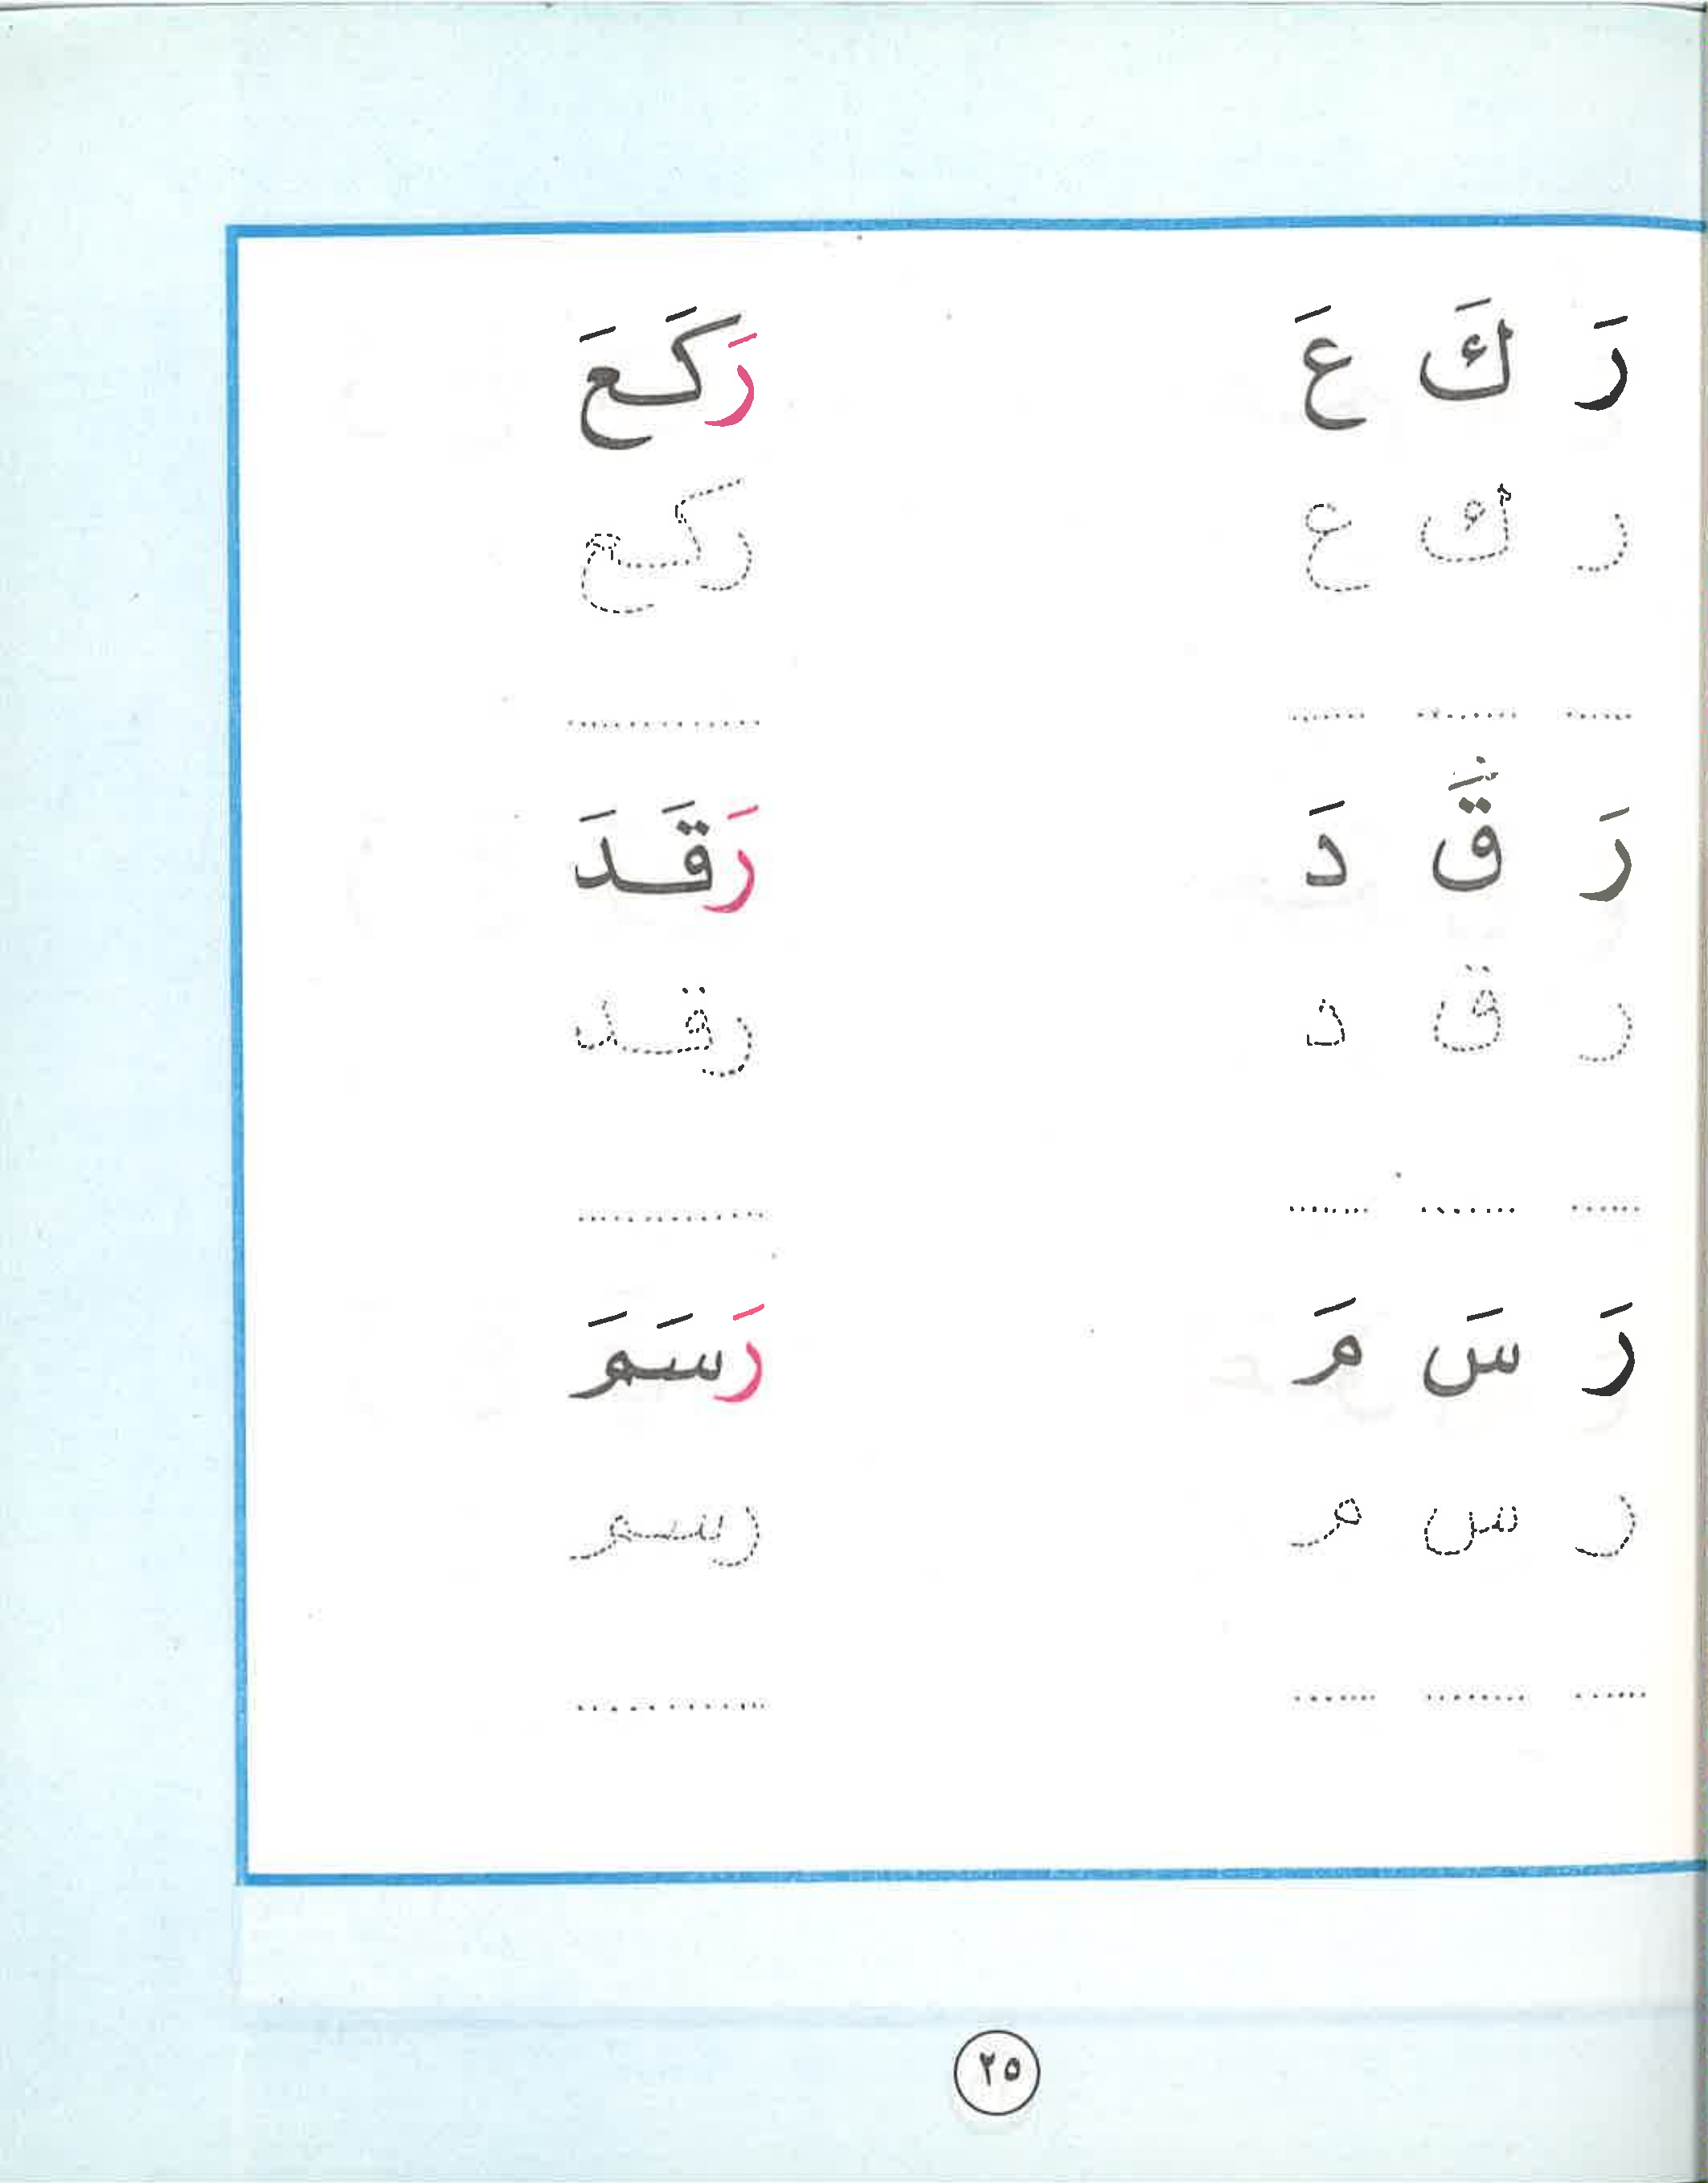 رَ كَ عَ رَكَعَ
ر ك ع ركع
رَ قَ دَ رَقَدَ
ر ق د رقد
رَ سَ مَ رَسَمَ
ر س م رسم
٢٥